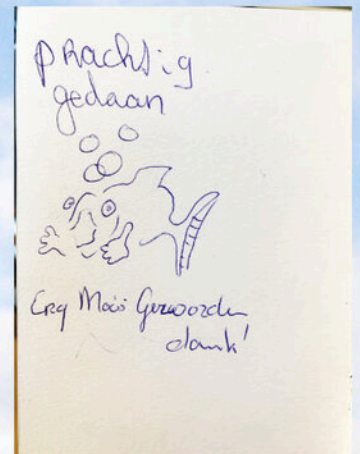 prachtig
gedaan
Erg Mooi Geworden
dank!